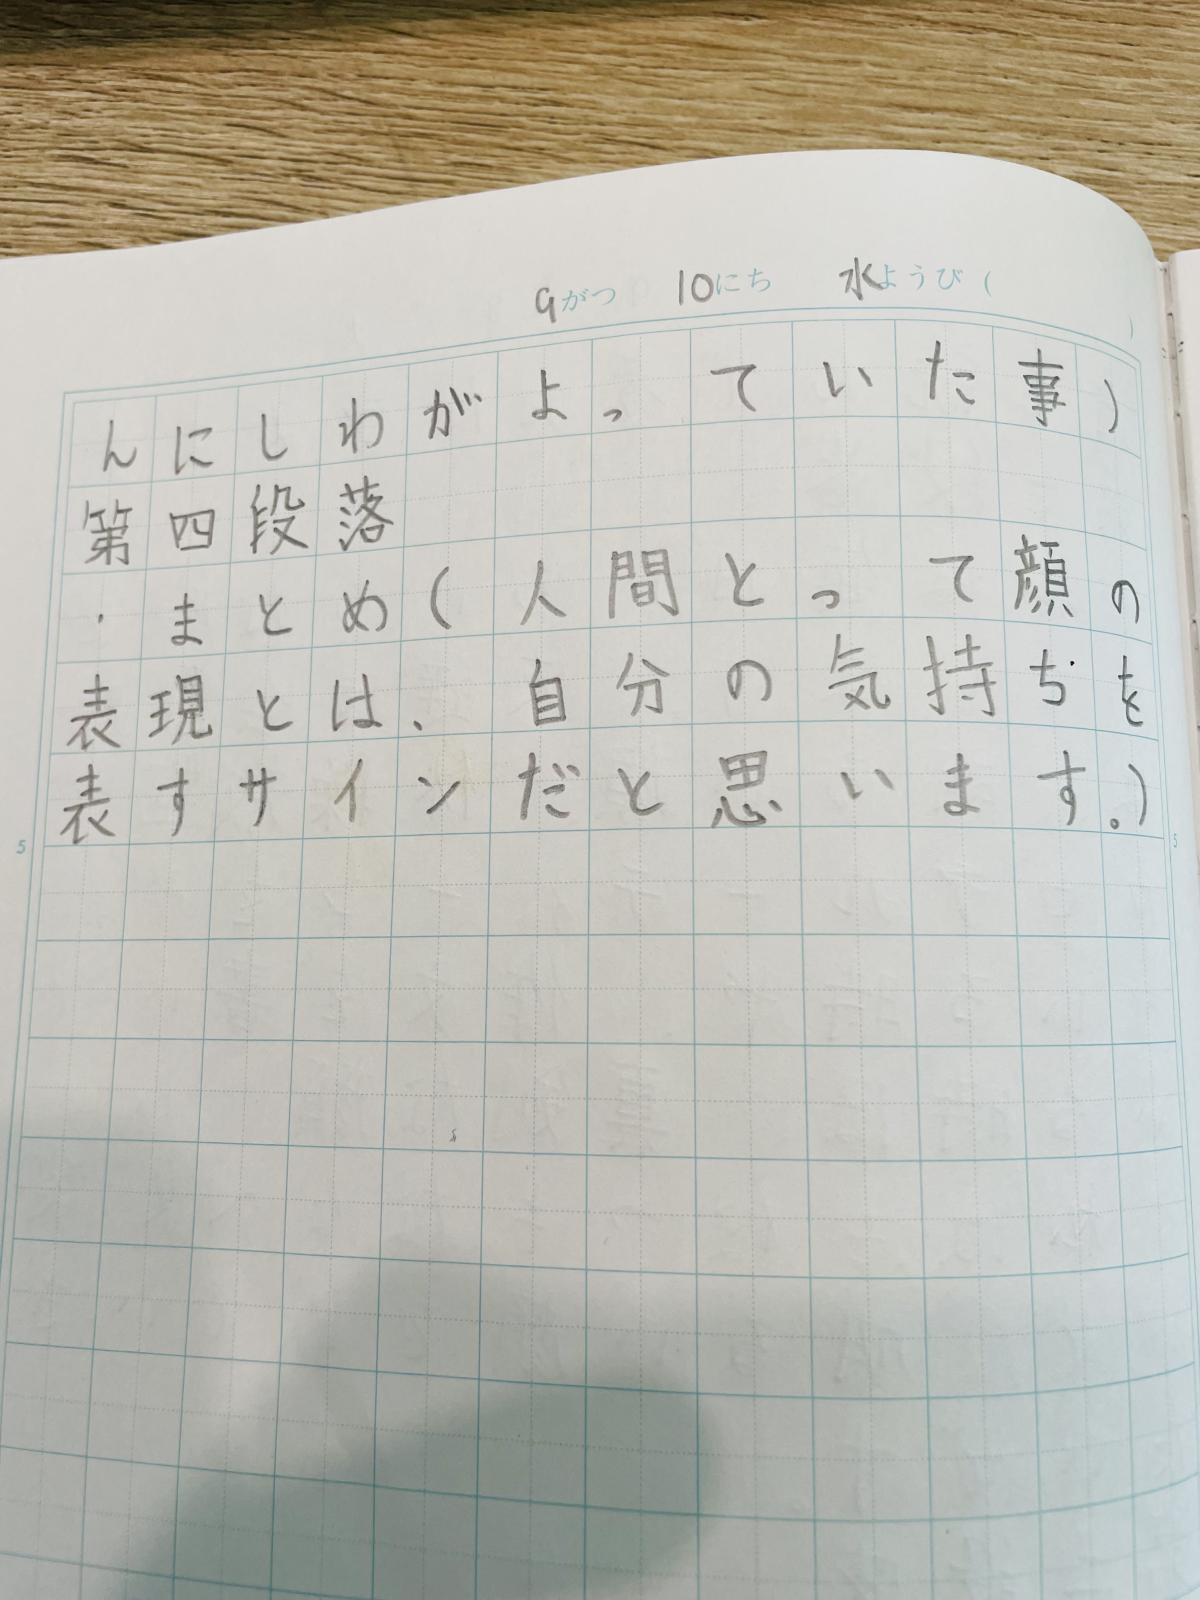 9がつ 10にち 水ようび ( )
んにしわがよっていた事)
第四段落
・まとめ(人間とって顔の
表現とは、自分の気持ちを
表すサインだと思います。)
5 5